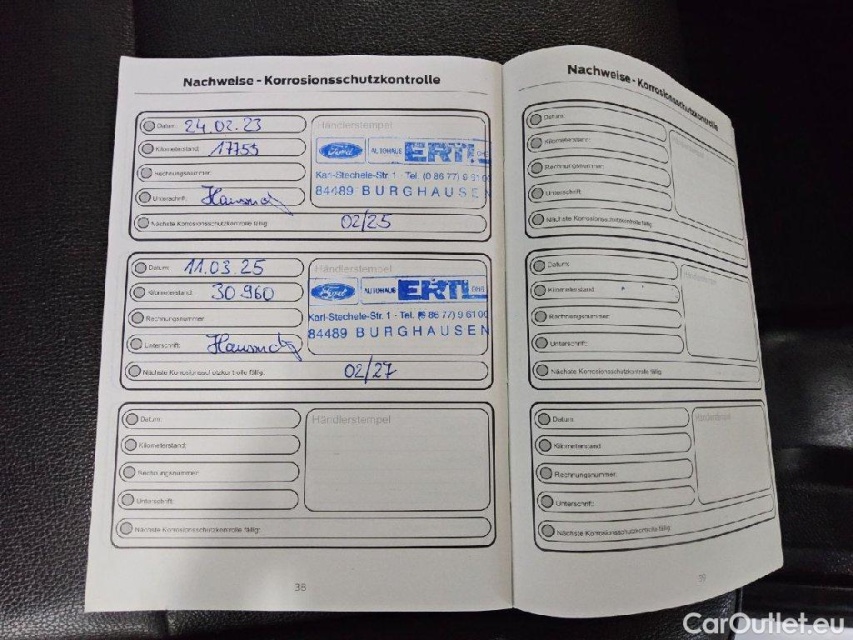 Nachweise - Korrosionsschutzkontrolle
Datum: 24.02.23
Händlerstempel
Kilometerstand: 17753
Ford AUTOHAUS ERTL OHG
Rechnungsnummer:
Karl-Stechele-Str. 1 - Tel. (0 86 77) 9 61 0
Unterschrift:
84489 BURGHAUSEN
Nächste Korrosionsschutzkontrolle fällig: 02/25
Datum: 11.03.25
Händlerstempel
Kilometerstand: 30960
Ford AUTOHAUS ERTL OHG
Rechnungsnummer:
Karl-Stechele-Str. 1 - Tel. (0 86 77) 9 61 00
Unterschrift:
84489 BURGHAUSEN
Nächste Korrosionsschutzkontrolle fällig: 02/27
Datum:
Händlerstempel
Kilometerstand:
Rechnungsnummer:
Unterschrift:
Nächste Korrosionsschutzkontrolle fällig:
38
Nachweise - Korrosionsschutzkontrolle
Datum:
Kilometerstand:
Rechnungsnummer:
Unterschrift:
Nächste Korrosionsschutzkontrolle fällig:
Datum:
Kilometerstand:
Rechnungsnummer:
Unterschrift:
Nächste Korrosionsschutzkontrolle fällig:
Datum:
Händlerstempel
Kilometerstand:
Rechnungsnummer:
Unterschrift:
Nächste Korrosionsschutzkontrolle fällig:
39
CarOutlet.eu